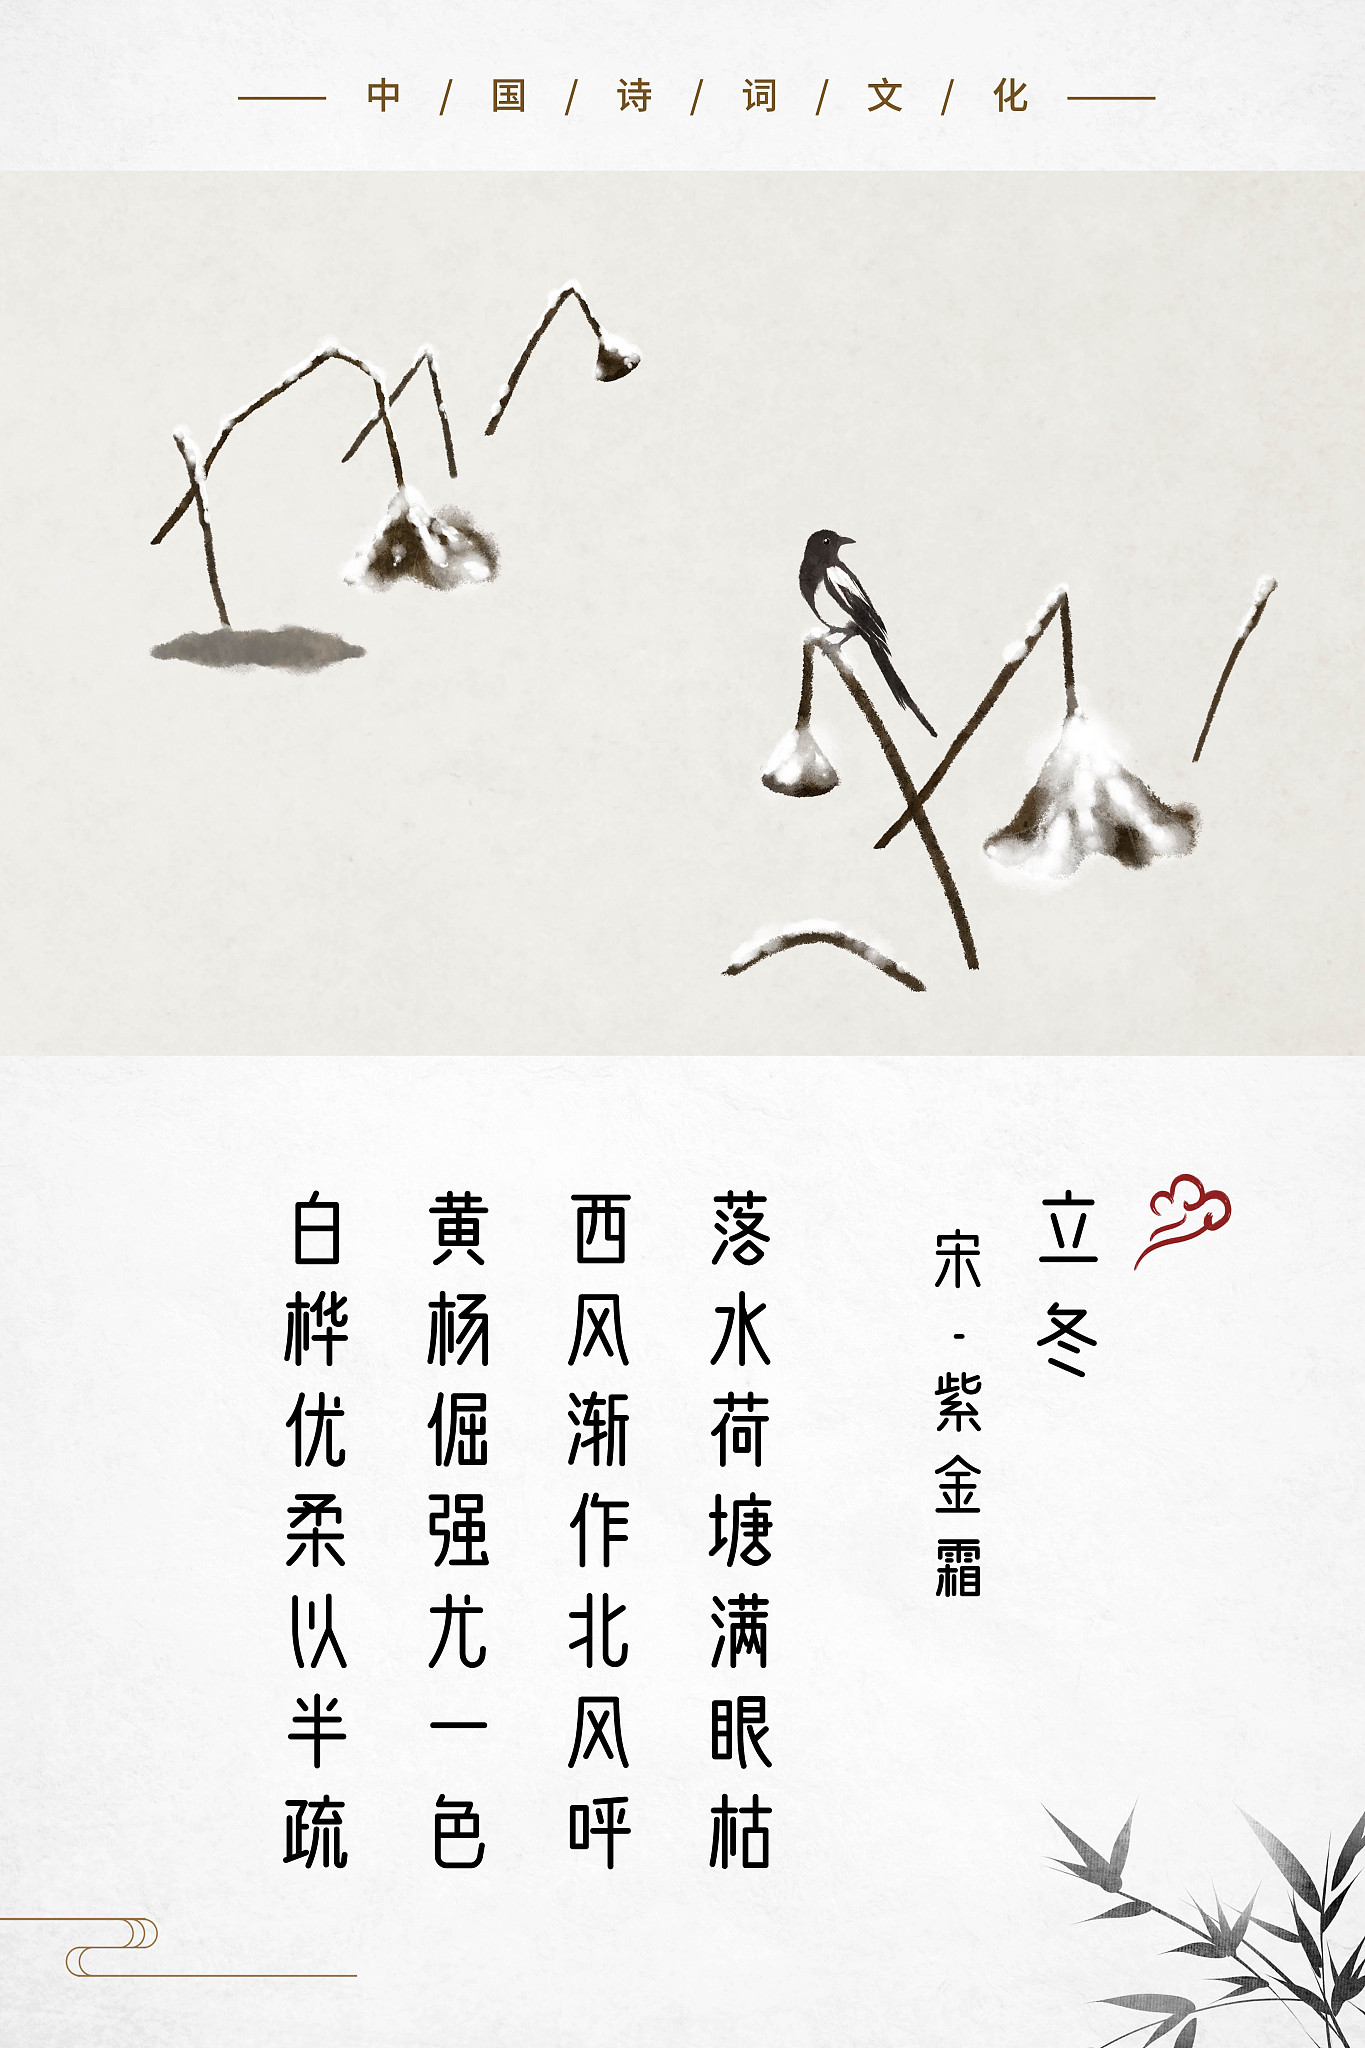 中/国/诗/词/文/化
立冬
宋-紫金霜
落水荷塘满眼枯
西风渐作北风呼
黄杨倔强尤一色
白桦优柔以半疏